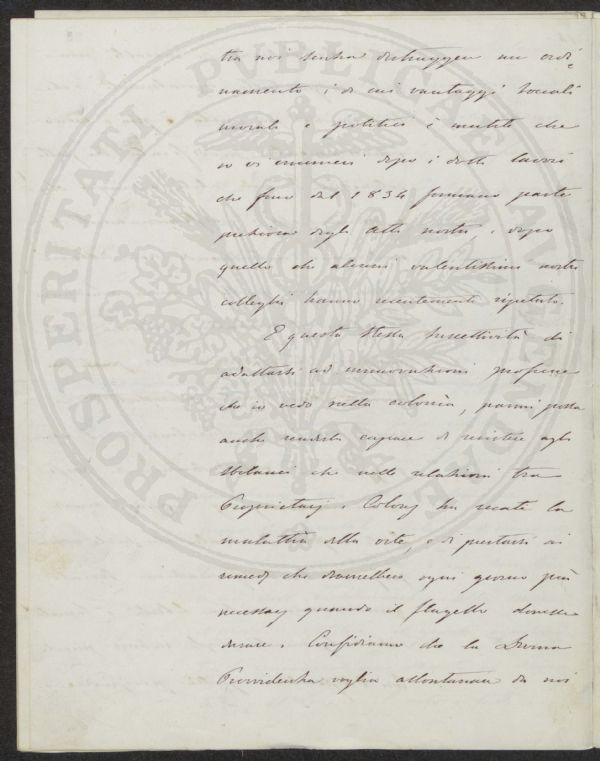 tra noi senza distruggere un ordi=
namento i di cui vantaggi sociali
morali e politici è inutile che
io vi enumeri dopo i dotti lavori
che fino dal 1834 formano parte
preziosa degli Atti nostri, e dopo
quello che alcuni valentissimi nostri
colleghi hanno recentemente ripetuto.
E questa stessa suscettività di
adattarsi ad innovazioni proficue
che io vedo nella colonia, parmi possa
anche renderla capace di resistere agli
sbilanci che nelle relazioni tra
Proprietarj e Colonj ha recati la
malattia della vite, e di prestarsi ai
rimedj che dovrebbero ogni giorno più
necessarj quando il flagello dovesse
durare. Confidiamo che la Divina
Provvidenza voglia allontanare da noi
PROSPERITATI PUBLICAE AUGENDAE